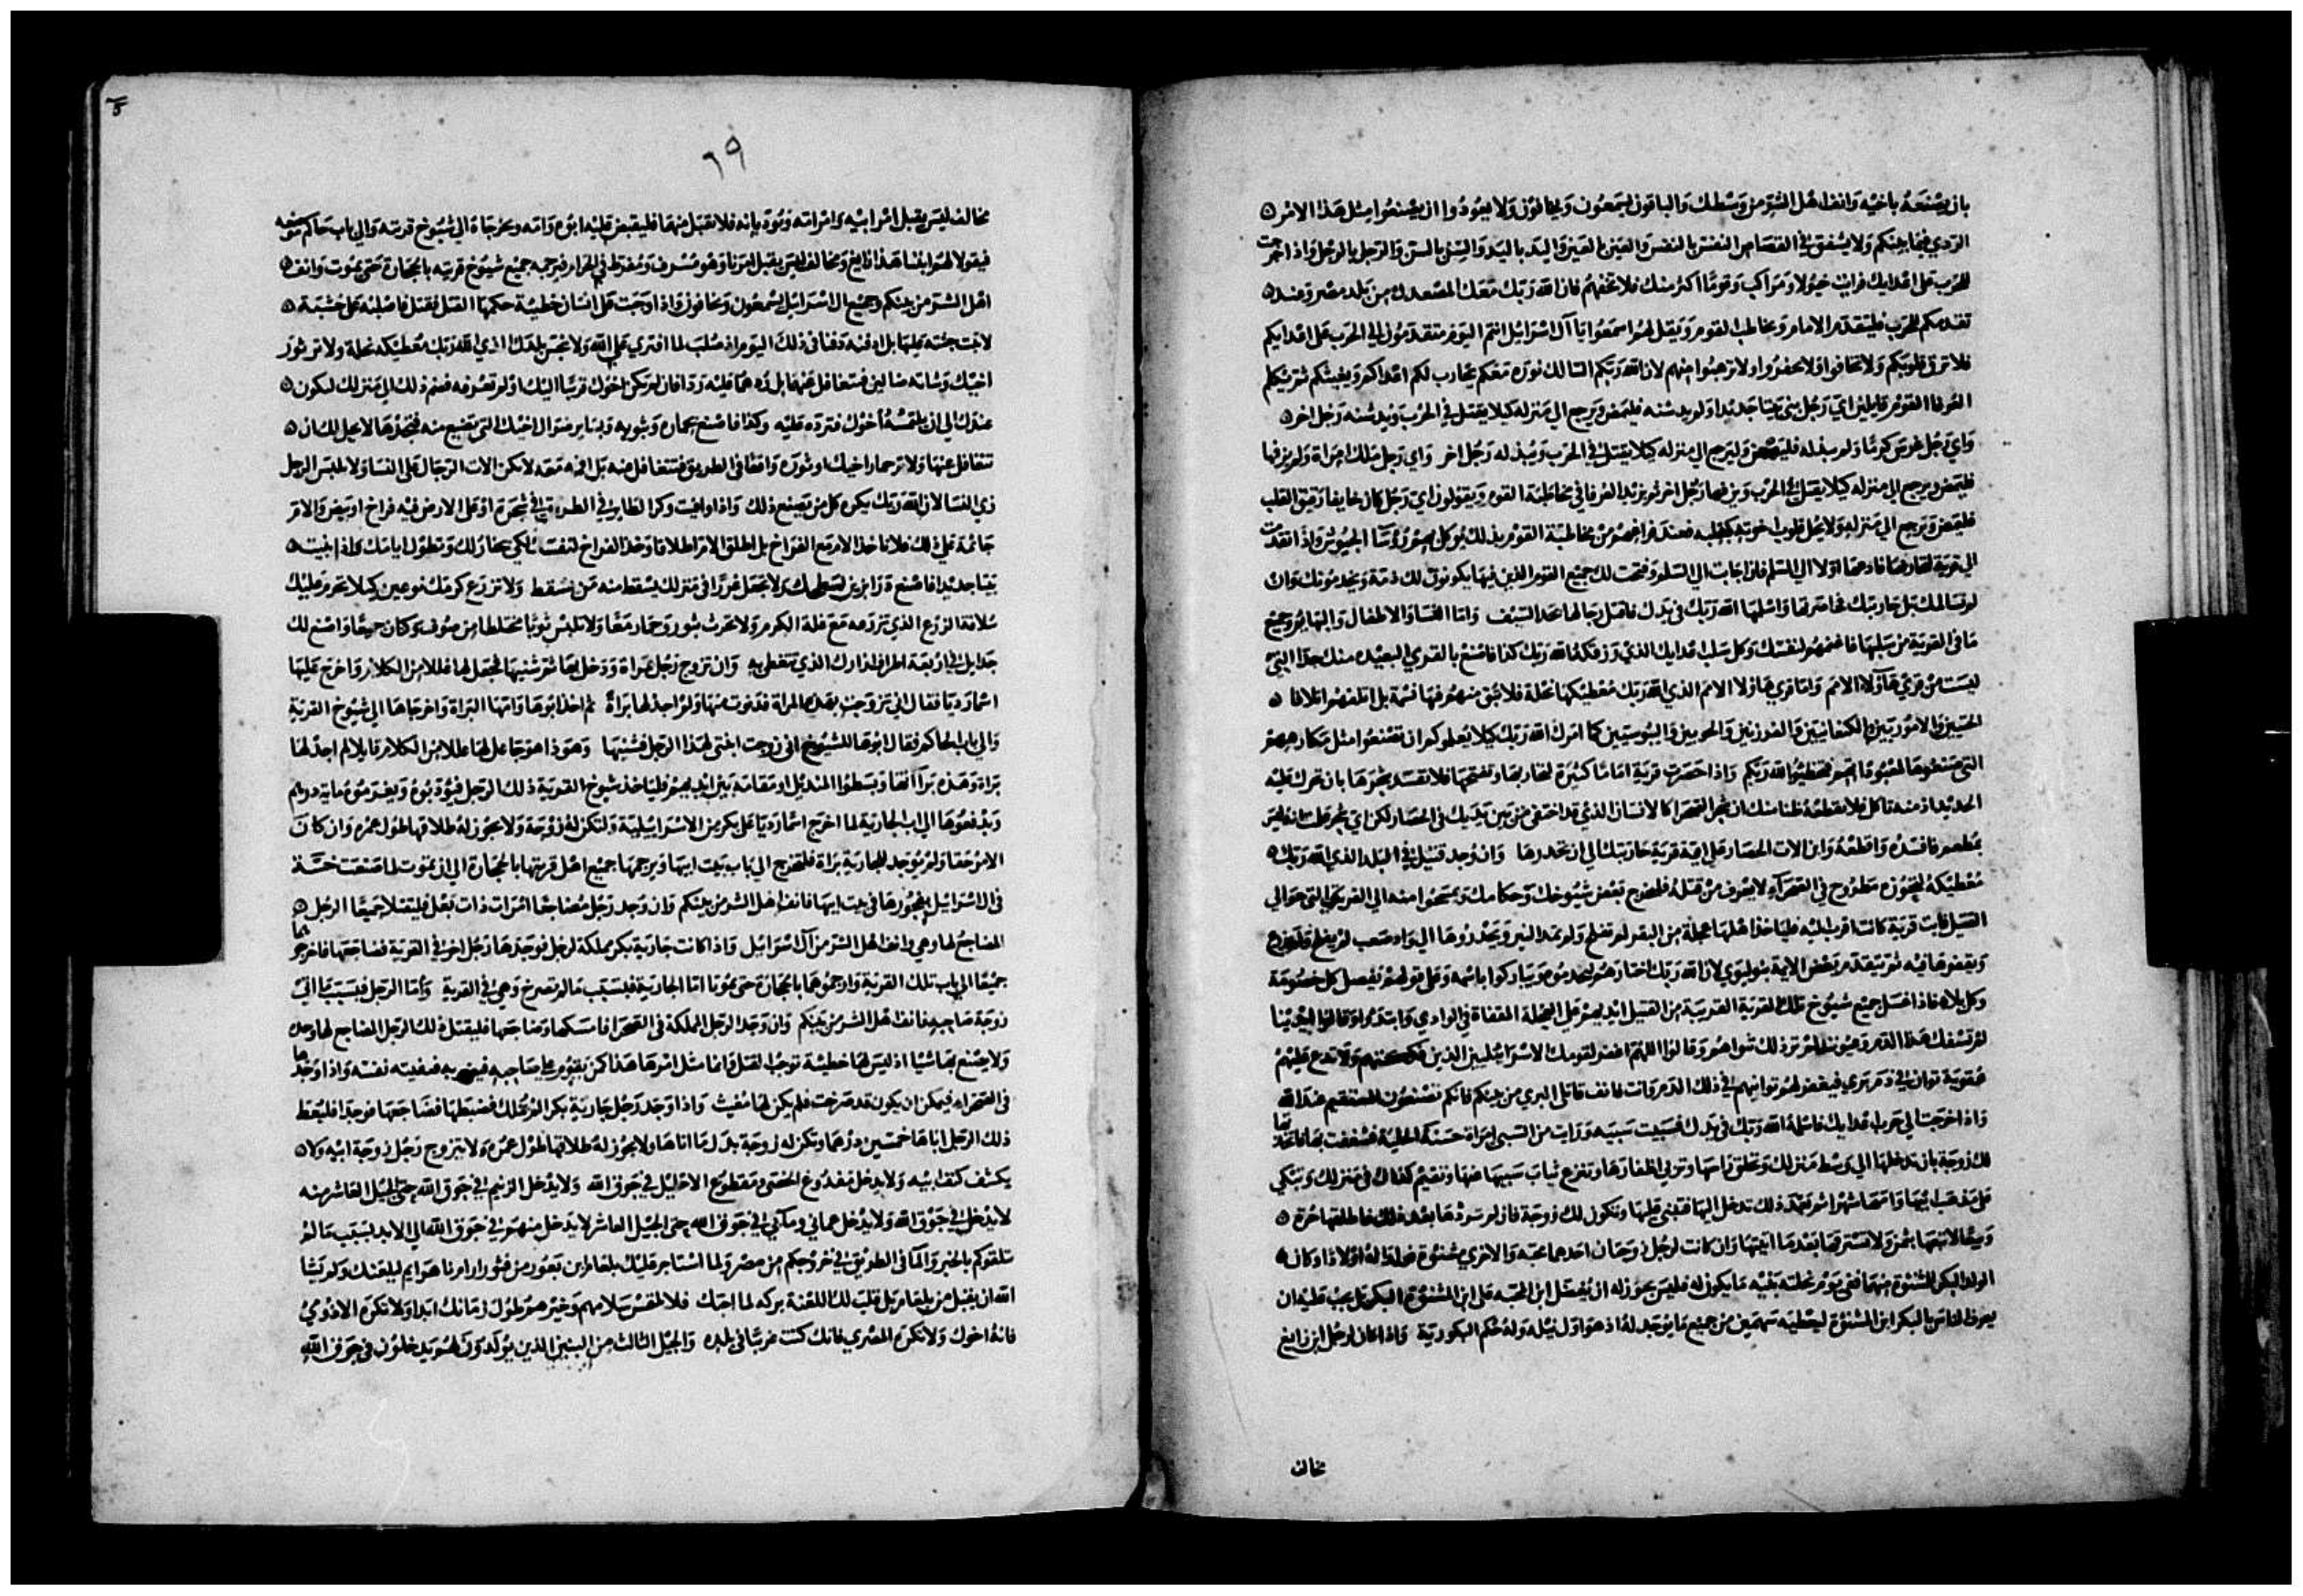 بان يصنعه باخيه وانف اهل الشر من وسطك والباقون ليسمعون ويخافون ولا يعودوا ان يصنعوا مثل هذا الامر
الردي فيما بينكم ولا يشفق في القصاص النفس بالنفس والعين بالعين واليد باليد والسن بالسن والرجل بالرجل واذا خرجت
للحرب على اعدايك فرايت خيولا ومراكب وقوما اكثر منك فلا تخفهم فان الله ربك معك المصعدك من بلد مصر وعند
تقدمكم للحرب فليتقدم الامام ويخاطب القوم ويقل لهم اسمعوا يا آل اسرائيل انتم اليوم متقدمون الي الحرب على اعدايكم
فلا ترق قلوبكم ولا تخافوا ولا تحفزوا ولا ترهبوا منهم لان الله ربكم السالك نوره معكم يحارب لكم اعداكم ويغيثكم ثم يكلم
العرفا القوم قايلين اي رجل بنى بيتا جديدا ولم يدشنه فليمض ويرجع الي منزله كيلا يقتل في الحرب ويدشنه رجل اخر
واي رجل غرس كرما ولم يبذله فليمض وليرجع الي منزله كيلا يقتل في الحرب ويبذله رجل اخر واي رجل ملك امراة ولم يزفها
فليمض ويرجع الي منزله كيلا يقتل في الحرب ويزفها رجل اخر ثم يزيد العرفا في مخاطبة القوم ويقولون اي رجل كان خايفا رقيق القلب
فليمض ويرجع الي منزله ولا يحل قلوب اخوته كقلبه فعند فراغهم من مخاطبة القوم بذلك يوكل بهم رؤسا الجيوش واذا تقدمت
الي قرية لتحاربها فادعها اولا الي السلم فان اجابت الي السلم وفتحت لك جميع القوم الذين فيها يكونون لك ذمة ويخدمونك وان
لم تسالمك بل حاربتك فحاصرتها واسلمها الله ربك في يدك فاقتل رجالها بحد السيف واما النسا والاطفال والبهايم وجميع
ما في القرية من سلبها فاغنمه لنفسك وكل سلب اعدايك الذي رزقكه الله ربك كذا فاصنع بالقري البعيدة منك جدا التي
ليست من قري هاولا الامم واما قري هاولا الامم الذي الله ربك معطيكها نحلة فلا تبق منهم فيها نسمة بل اتلفهم اتلافا
الحثيين والاموريين والكنعانيين والفرزيين والحويين واليبوسيين كما امرك الله ربك كيلا يعلموكم ان تصنعوا مثل مكارههم
التي صنعوها لمعبوداتهم فتخطيوا لله ربكم واذا حصرت قرية اياما كثيرة لتحاربها وتفتحها فلا تفسد شجرها بان تحرك عليه
الحديد اذ منه تاكل فلا تقطعه ظنا منك ان شجر الصحرا كالانسان الذي قد اختفى من بين يديك في الحصار لكن اي شجر علمت انه ليس
بمطعم فافسده واقطعه وابن الات الحصار على اية قرية حاربتك الي ان تحدرها وان وجد قتيل في البلد الذي الله ربك
معطيكه لتحوزه مطروح في الصحراء لا يعرف من قتله فليخرج بعض شيوخك وحكامك ويمسحوا منه الي القري التي حوالي
القتيل فاية قرية كانت اقرب اليه فلياخذ اهلها عجلة من البقر لم تفلح ولم تمد النير ويحدروها الي واد صعب لم يفلح ولم يزرع
ويقفوها فيه ثم يتقدم بعض الايمة بنو ليوي لان الله ربك اختارهم ليخدموه ويباركوا باسمه وعلى قولهم تفصل كل خصومة
وكل بلاء فاذا غسل جميع شيوخ تلك القرية القريبة من القتيل ايديهم على العجلة المقفاة في الوادي وابتدوا وقالوا ايدينا
لم تسفك هذا الدم وعيوننا لم تر ذلك ثم اهم وقالوا اللهم اغفر لقومك الاسراييليين الذين فككتهم ولا تدع عليهم
عقوبة توان في دم بري فيغفر لهم توانيهم في ذلك الدم وانت فانف قاتل البري من بينكم فانكم تصنعون المستقيم عند الله
واذا خرجت الي حرب اعدايك فاسلمه الله ربك في يدك فسبيت سبيه ورايت من السبي امراة حسنة الحلية فشغفت بها فاتخذتها
لك زوجة بان تدخلها الي وسط منزلك وتحلق راسها وتربي اظفارها وتنزع ثياب سبيها عنها وتقيم كذاك في منزلك وتبكي
على مذهب ابيها وامها شهرا ثم بعد ذلك تدخل اليها فتبني عليها وتكون لك زوجة فان لم تردها بعد ذلك فاطلقها حرة
وبيعا لا تبعها بثمن ولا تسترقها بعد ما اتيتها وان كانت لرجل زوجتان احدهما محبة والاخري مشنوة فولدتا له اولادا وكان
الولد البكر للمشنوة منهما ففي يوم نحلته بنيه ما يكون له فليس يجوز له ان يفضل ابن المحبه على ابن المشنوة البكر بل يجب عليه ان
يعرف الناس بالبكر ابن المشنوة ليعطيه سهمين من جميع ما يوجد له اذ هو اول نيله وله حكم البكورية واذا كان لرجل ابن زايغ
مخالف
٦٩
مخالف ليس يقبل امر ابيه وامر امه ويودبانه فلا يقبل منهما فليقبض عليه ابوه وامه ويخرجاه الي شيوخ قريته والي باب حاكم موضعه
فيقولا لهم ابننا هذا زايغ ومخالف ليس يقبل امرنا وهو مسرف ومفرط في الحرام فيرجمه جميع شيوخ قريته بالحجارة حتى يموت وانف
اهل الشر من بينكم وجميع ال اسراييل يسمعون ويخافون واذا وجبت على انسان خطيية حكمها القتل فقتل فاصلبه على خشبة
لا تبت جثته عليها بل ادفنه دفنا في ذلك اليوم اذ صلب لما افتري على الله ولا تنجس بلدك الذي الله ربك معطيكه نحلة ولا تر ثور
اخيك وشاته ضالين فتتغافل عنها بل ردهما عليه ردا فان لم يكن اخوك قريبا اليك او لم تعرفه فضم ذلك الي منزلك ليكون
عندك الي ان يلتمسه اخوك فترده عليه وكذا فاصنع بحماره وبثوبه وبساير ضوال اخيك التي تضيع منه فتجدها لا يحل لك ان
تتغافل عنها ولا تر حمار اخيك او ثوره واقعا في الطريق فتتغافل عنه بل اقمه معه لا تكن الات الرجال على النسا ولا يلبس الرجل
زي النسا لان الله ربك يكره كل من يصنع ذلك واذا وافيت وكرا لطاير في الطريق في شجرة او على الارض فيه فراخ او بيض والام
جاثمة عليه فلا تاخذ الام مع الفراخ بل اطلق الام اطلاقا وخذ الفراخ لنفسك لكي يحاز لك وتطول ايامك واذا بنيت
بيتا جديدا فاصنع درابزين لسطحك ولا تجعل غررا في منزلك يسقط منه من يسقط ولا تزرع كرمك نوعين كيلا يحرم عليك
سلافة الزرع الذي تزرعه مع غلة الكرم ولا تحرث بثور وحمار معا ولا تلبس ثوبا مختلطا من صوف وكتان جميعا واصنع لك
جدايل في اربعة اطراف ازارك الذي تتغطي به وان تزوج رجل بمراة ودخل بها ثم شنيها فجعل لها عللا من الكلام واخرج عليها
اسما رديا فقال اني تزوجت بهذه المراة فدنوت منها ولم اجد لها براة ثم اخذ ابوها وامها البراة واخرجاها الي شيوخ القرية
والي باب الحاكم فقال ابوها للشيوخ اني زوجت ابنتي لهذا الرجل فشنيها وهوذا هو جاعل لها عللا من الكلام قايلا لم اجد لها
براة وهذه براتها وبسطوا المنديل او مقامه بين ايديهم فلياخذ شيوخ القرية ذلك الرجل فيودبوه ويغرموه ماية درهم
ويدفعوها الي اب الجارية لما اخرج اسما رديا على بكر من الاسراييلية ولتكن له زوجة ولا يجوز له طلاقها طول عمره وان كان
الامر حقا ولم يوجد للجارية براة فلتخرج الي باب بيت ابيها ويرجمها جميع اهل قريتها بالحجارة الي ان تموت لما صنعت خسة
في ال اسراييل بفجورها في بيت ابيها فانف اهل الشر من بينكم وان وجد رجل مضاجعا امرات ذات بعل فليقتلا جميعا الرجل
المضاجع لها وهي وانف اهل الشر من آل اسراييل واذا كانت جارية بكر مملكة لرجل فوجدها رجل اخر في القرية فضاجعها فاخرجوهما
جميعا الي باب تلك القرية وارجموهما بالحجارة حتى يموتا اما الجارية فبسبب ما لم تصرخ وهي في القرية واما الرجل فبسبب ما اتى
زوجة صاحبه فانف اهل الشر من بينكم وان وجد الرجل المملكة في الصحرا فامسكها وضاجعها فليقتل ذلك الرجل المضاجع لها وحده
ولا يصنع بها شيا اذ ليس لها خطيية توجب القتل وانما مثل امرها هذا كمن يقوم على صاحبه فيضربه فيفيته نفسه واذا وجدها
في الصحراء فيمكن ان يكون قد صرخت فلم يكن لها مغيث واذا وجد رجل جارية بكر لم تملك فضبطها فضاجعها فوجدا فليعط
ذلك الرجل اباها خمسين درهما وتكن له زوجة بدل ما اتاها ولا يجوز له طلاقها طول عمره ولا يتزوج رجل زوجة ابيه ولا
يكشف كنف ابيه ولا يدخل مفدوغ الخصى ومقطوع الاحليل في جوق الله ولا يدخل الزنيم في جوق الله حتى الجيل العاشر منه
لا يدخل في جوق الله ولا يدخل عماني ومآبي في جوق الله حتى الجيل العاشر لا يدخل منهم في جوق الله الي الابد بسبب ما لم
تلقوكم بالخبز والما في الطريق في خروجكم من مصر ولما استاجر عليك بلعام ابن بعور من فثور ارام نهراييم ليلعنك ولم يشا
الله ان يقبل من بلعام بل قلب لك اللعنة بركه لما احبك فلا تلتمس سلامهم وخيرهم طول زمانك ابدا ولا تكره الادومي
فانه اخوك ولا تكره المصري فانك كنت غريبا في بلده والجيل الثالث من البنين الذين يولدون لهم يدخلون في جوق الله